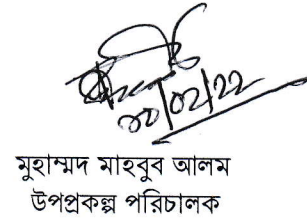 ৩০/০২/২২
মুহাম্মদ মাহবুব আলম
উপপ্রকল্প পরিচালক